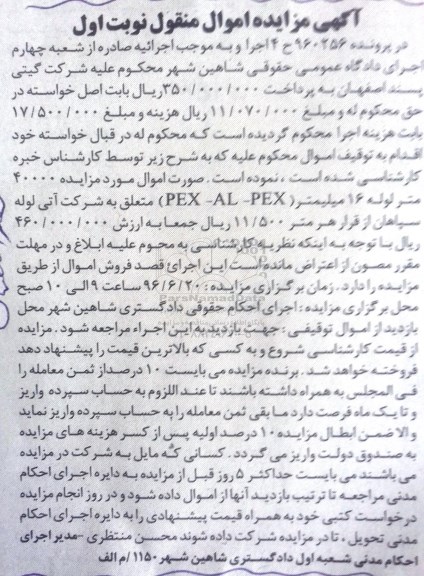 آگهی مزایده اموال منقول نوبت اول
در پرونده ۹۶۰۲۵۶ ح ۴ اجرا و به موجب اجرائیه صادره از شعبه چهارم
اجرای دادگاه عمومی حقوقی شاهین شهر محکوم علیه شرکت گیتی
پسند اصفهان به پرداخت ۳۵۰/۰۰۰/۰۰۰ ریال بابت اصل خواسته در
حق محکوم له و مبلغ ۱۱/۰۷۰/۰۰۰ ریال هزینه و مبلغ ۱۷/۵۰۰/۰۰۰
بابت هزینه اجرا محکوم گردیده است که محکوم له در قبال خواسته خود
اقدام به توقیف اموال محکوم علیه که به شرح زیر توسط کارشناس خبره
کارشناسی شده است، نموده است. صورت اموال مورد مزایده ۴۰۰۰۰
متر لوله ۱۶ میلیمتر (PEX -AL -PEX) متعلق به شرکت آتی لوله
سپاهان از قرار هر متر ۱۱/۵۰۰ ریال جمعا به ارزش ۴۶۰/۰۰۰/۰۰۰
ریال با توجه به اینکه نظریه کارشناسی به محوم علیه ابلاغ و در مهلت
مقرر مصون از اعتراض مانده است این اجرائ قصد فروش اموال از طریق
مزایده را دارد. زمان برگزاری مزایده: ۹۶/۶/۲۰ ساعت ۹ الی ۱۰ صبح
محل برگزاری مزایده: اجرای احکام حقوقی دادگستری شاهین شهر محل
بازدید از اموال توقیفی: جهت بازدید به این اجراء مراجعه شود. مزایده
از قیمت کارشناسی شروع و به کسی که بالاترین قیمت را پیشنهاد دهد
فروخته خواهد شد. برنده مزایده می بایست ۱۰ درصد از ثمن معامله را
فی المجلس به همراه داشته باشند تا عند اللزوم به حساب سپرده واریز
و تا یک ماه فرصت دارد ما بقی ثمن معامله را به حساب سپرده واریز نماید
و الا ضمن ابطال مزایده ۱۰ درصد اولیه پس از کسر هزینه های مزایده
به صندوق دولت واریز می گردد. کسانی که مایل به شرکت در مزایده
می باشند می بایست حداکثر ۵ روز قبل از مزایده به دایره اجرای احکام
مدنی مراجعه تا ترتیب بازدید آنها از اموال داده شود و در روز انجام مزایده
درخواست کتبی خود به همراه قیمت پیشنهادی را به دایره اجرای احکام
مدنی تحویل، تا در مزایده شرکت داده شوند محسن منتظری -مدیر اجرای
احکام مدنی شعبه اول دادگستری شاهین شهر ۱۱۵۰/م الف
ParsNamadData